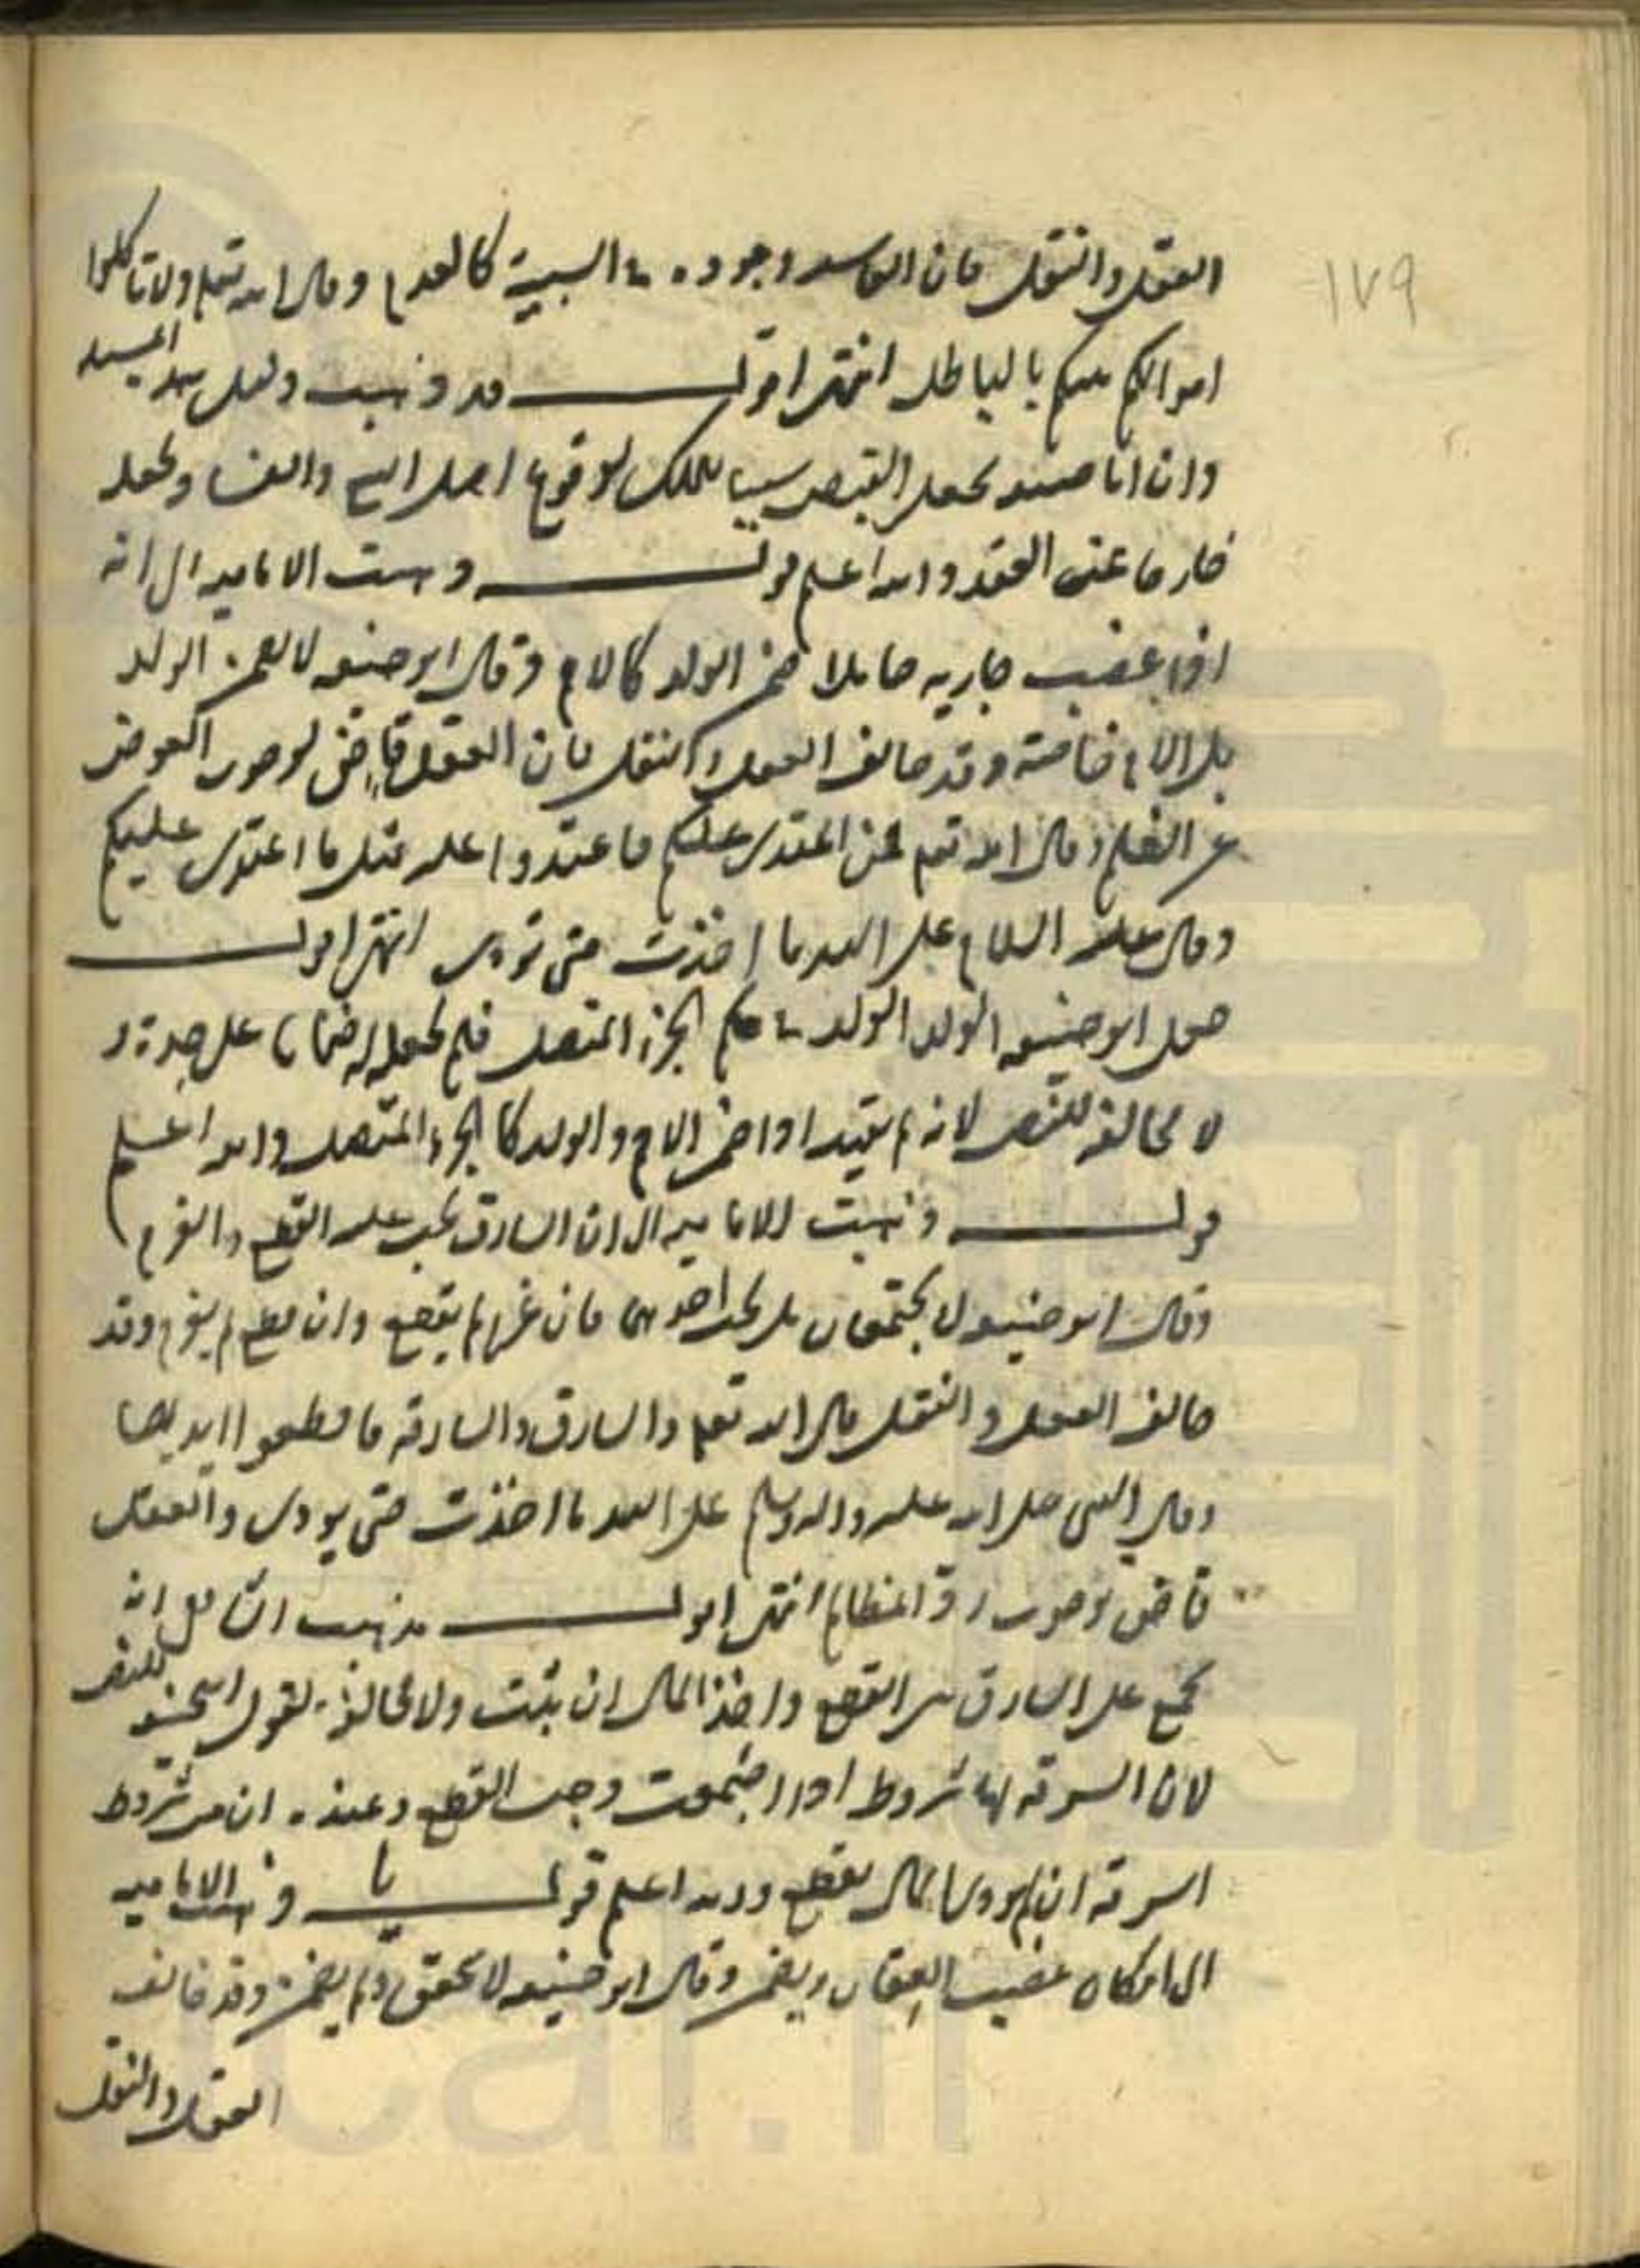 ١٧٩
العقل والنقل فان الفاسد وجوده في السببية كالعدم وقال الله تعالى ولا تاكلوا
اموالكم بينكم بالباطل انتهى اقول قد ذهب دليل هذه المسئلة
وان ابا حنيفة يجعل القبض سببا للملك لوقوع اصل البيع والفساد يجعله
خارجا عن العقد والله اعلم قوله وذهبت الامامية الى انه
اذا غصب جارية حاملا ضمن الولد كالام وقال ابو حنيفة لا يضمن الولد
بل الام خاصة وقد خالف العقل والنقل فان العقل قاض لوجوب العوض
عن الظلم وقال الله تعالى فمن اعتدى عليكم فاعتدوا عليه بمثل ما اعتدى عليكم
وقال عليه السلام على اليد ما اخذت حتى تؤدى انتهى اقول
جعل ابو حنيفة الولد الولد في حكم الجزء المتصل فلم يجعل له ضمانا على حدة و
لا مخالفة للنص لانه لم يتعد اذا ضمن الام والولد كالجزء المتصل والله اعلم
قوله وذهبت الامامية الى ان السارق يجب عليه القطع والغرم
وقال ابو حنيفة لا يجتمعان بل يجب احدهما فان غرم لم يقطع وان قطع لم يغرم وقد
خالف العقل والنقل قال الله تعالى والسارق والسارقة فاقطعوا ايديهما
وقال النبي صلى الله عليه واله وسلم على اليد ما اخذت حتى يودى والعقل
قاض بوجوب رد المظالم انتهى اقول مذهب الشافعي انه
يجمع على السارق بين القطع واخذ المال ان تثبت ولا مخالفة لقول ابي حنيفة للنص
لان السرقة لها شروط اذا اجتمعت وجب القطع وعنده ان من شروط
السرقة ان لم يود المال يقطع والله اعلم قوله يا وذهبت الامامية
الى امكان غصب العقار ويضمن وقال ابو حنيفة لا يتحقق ولم يضمن وقد خالف
العقل والنقل